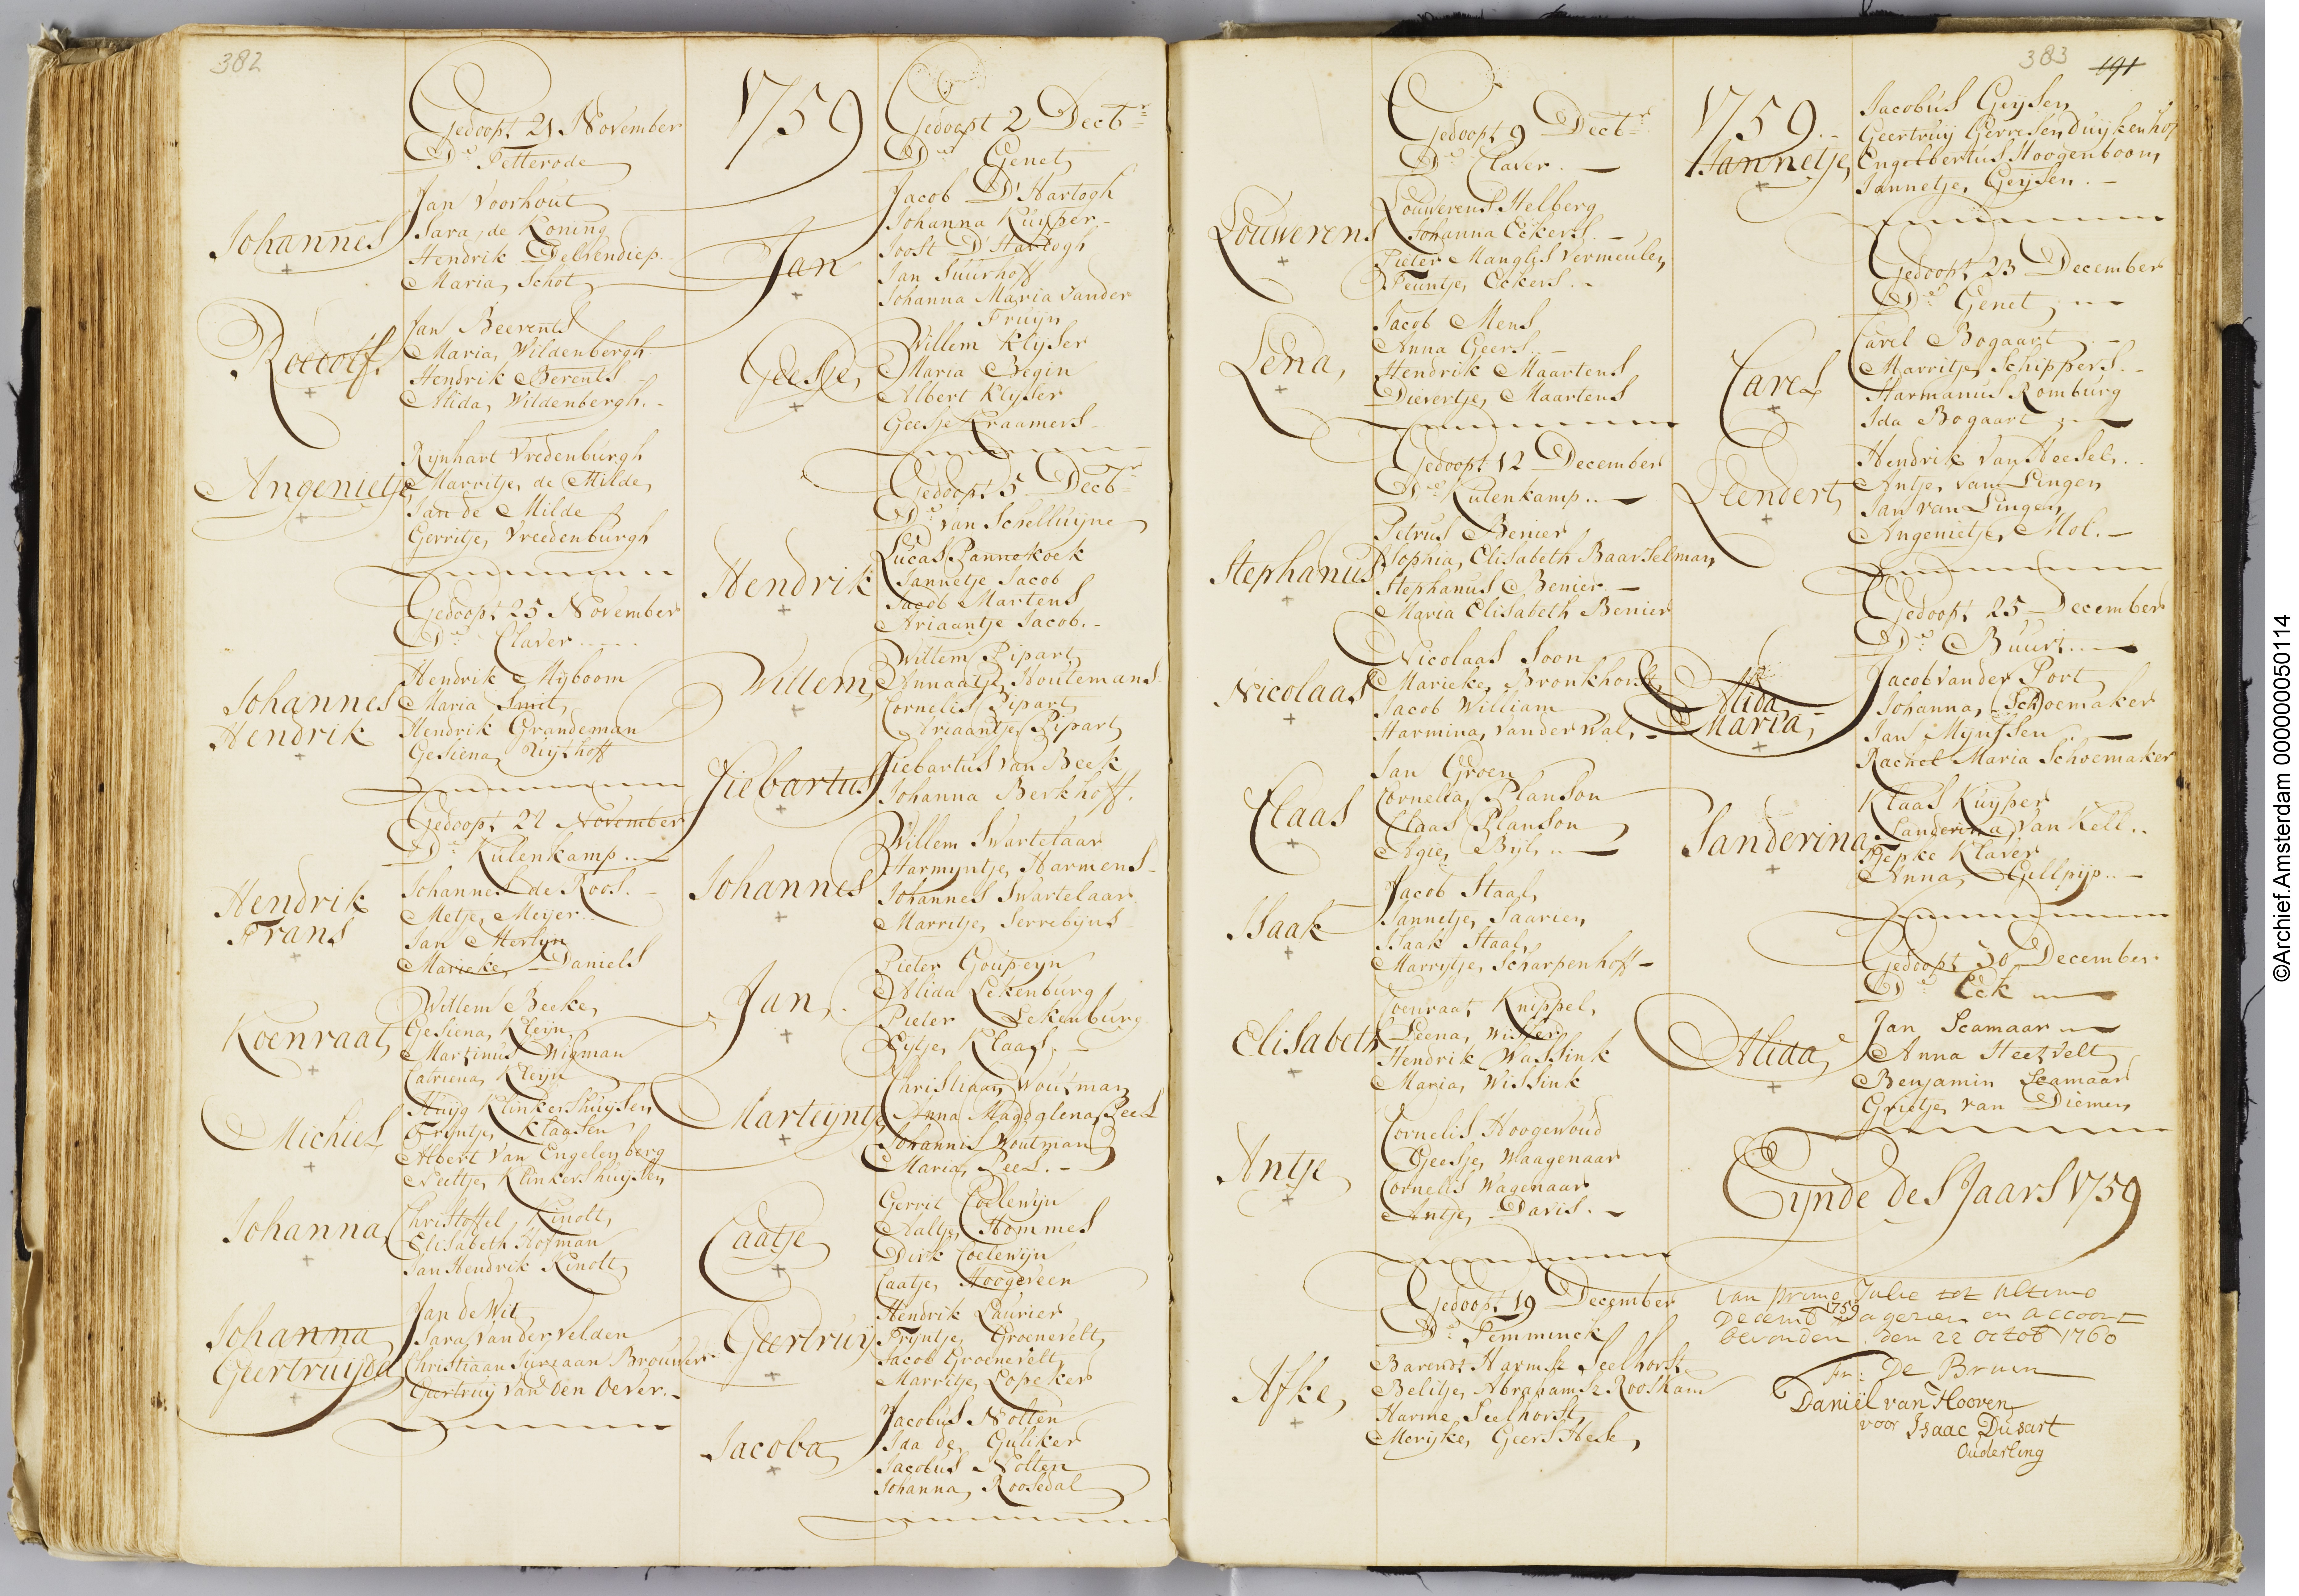 382
Gedoopt 21 November
Ds. Petterode
Johannes
Jan Voorhout
Sara de Koning
Hendrik Delsendiep
Maria Schot
Roelolf
Jan Beerents
Maria Wildenbergh
Hendrik Berents
Alida Wildenbergh.
Angenietje
Rynhart Vredenburgh
Marritje de Milde
Jan de Milde
Gerritje Vreedenburgh
Gedoopt 25 November
Ds. Claver
Johannes
Hendrik
Hendrik Myboom
Maria Smit
Hendrik Grandeman
Gesiena
Gedoopt 22 November
Ds. Kulenkamp
Hendrik
Frans
Johannes de Roos.
Metje Meijer
Jan Merlyn
Marieke Daniels
Koenraat
Willem Beeke
Gesiena Kleijn
Martinus Wigman
Catriena Kleijn
Michiel
Huijg Klinkershuijsen
Tryntje Klaasen
Albert van Engelenberg
Neeltje Klinkershuijsen
Johanna
Christoffel Kindt
Elisabeth Hofman
Jan Hendrik Kindt
Johanna
Geertruijda
Jan de Wit
Sara van der Velden
Christiaan Jurriaan Brouwer
Geertruy van den Oever.
1759
Gedoopt 2 Decbr
Ds. Genet
Jan
Jacob D'Hartogh
Johanna Kuyper
Joost D'Hartogh
Jan Suurhoff
Johanna Maria vander
Fruyn
Geesje
Willem Klyser
Maria Begin
Albert Klyser
Geesje Kraamers
Gedoopt 5 Decbr
Ds. van Schelluijne
Hendrik
Lucas Pannekoek
Jannetje Jacob
Jacob Martens
Ariaantje Jacob.
Willem
Willem Pipart
Annaatje Houtemans
Cornelis Pipart
Ariaantje Pipart
Siebartus
Siebartus van Beek
Johanna Berkhoff.
Johannes
Willem Swartelaar
Harmyntje Harmens
Johannes Swartelaar
Marritje Serrebyns
Jan
Pieter Goupeyn
Alida Lekenburg
Pieter Lekenburg
Eytje Klaas
Marteijntje
Christiaan Woutman
Anna Magdalena Peel
Johannis Woutman
Maria Peel.
Caatje
Gerrit Coelewijn
Aaltje Hommes
Dirk Coelewijn
Caatje Hoogeveen
Geertruij
Hendrik Laurier
Tryntje Groenevelt
Jacob Groenevelt
Marritje Lopeker
Jacoba
Jacobus Nolten
Ida de Guliker
Jacobus Nolten
Johanna Roosedal
383
191
Gedoopt 9 Decbr
Ds. Claver.
Louwerens
Louwerens Helberg
Johanna Eckers
Pieter Manglis Vermeulen
Teuntje Eckers.
Lena
Jacob Mens
Anna Geers
Hendrik Maartens
Dievertje Maartens
Gedoopt 12 December
Ds. Kulenkamp
Stephanus
Petrus Benier
Sophia Elisabeth Baarselman
Stephanus Benier
Maria Elisabeth Benier
Nicolaas
Nicolaas Soon
Marieke Bronkhorst
Jacob William
Harmina vander Wal
Claas
Jan Groen
Cornelia Planson
Claas Planson
Agie Byl
Isaak
Jacob Staal
Jannetje Saarien
Isaak Staal
Marrytje Scharpenhoff
Elisabeth
Coenraat Knippel
Leena Wissen
Hendrik Wassink
Maria Wissink
Antje
Cornelis Hoogewoud
Geesje Waagenaar
Cornelis Wagenaar
Antje Davis.
Gedoopt 19 December
Ds. Temminck
Afke
Barendt Harmsz Seelhorst
Belitje Abrahamsz Rooskam
Harme Seelhorst
Merijke Geers Hesk
1759.
Jannetje
Jacobus Geijsen
Geertruy Gerresen Duijkenhof
Engelbertus Hoogenboom
Jannetje Geijsen.
Gedoopt 23 December
Ds. Genet
Carel
Carel Bogaart
Marritje Schippers.
Harmanus Romburg
Ida Bogaart
Leendert
Hendrik van Hoesel
Antje van Lingen
Jan van Lingen
Angenietje Mol.
Gedoopt 25 December
Ds. Buurt
Alida
Maria
Jacob vander Port
Johanna Schoemaker
Jan Mynssen
Rachel Maria Schoemaker
Sanderina
Klaas Kuijper
Sanderina van Kell
Jepke Klaver
Anna Gellpijp
Gedoopt 30 December
Ds. Eck
Alida
Jan Leamaar
Anna Heetvelt
Benjamin Leamaar
Grietje van Diemen
Eijnde des Jaars 1759
Van primo Julie tot Ultimo
Decemb 1759 nagezien en accoort
bevonden den 22 octob 1760
Fr: De Bruin
Daniel van Hooven
voor Isaac Dusart
Ouderling
©Archief.Amsterdam 000000050114